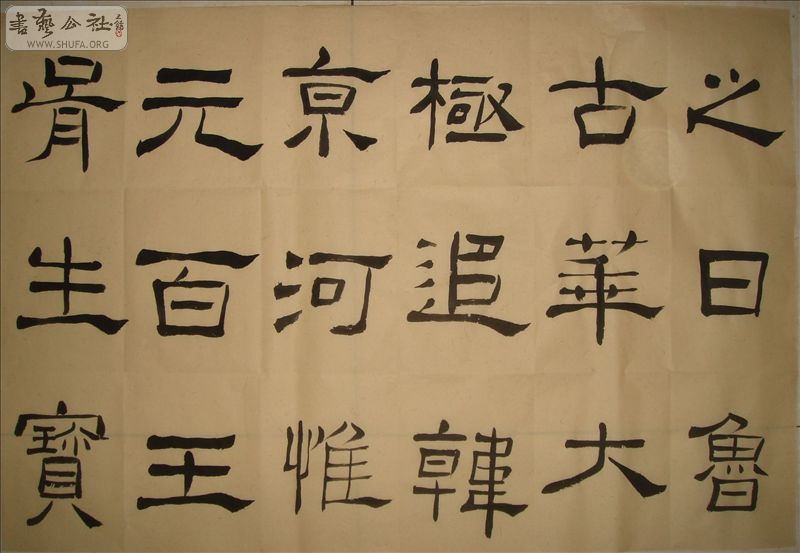 書藝公社
WWW.SHUFA.ORG
之日魯
古華大
極追韓
京河惟
元百王
胥生寶